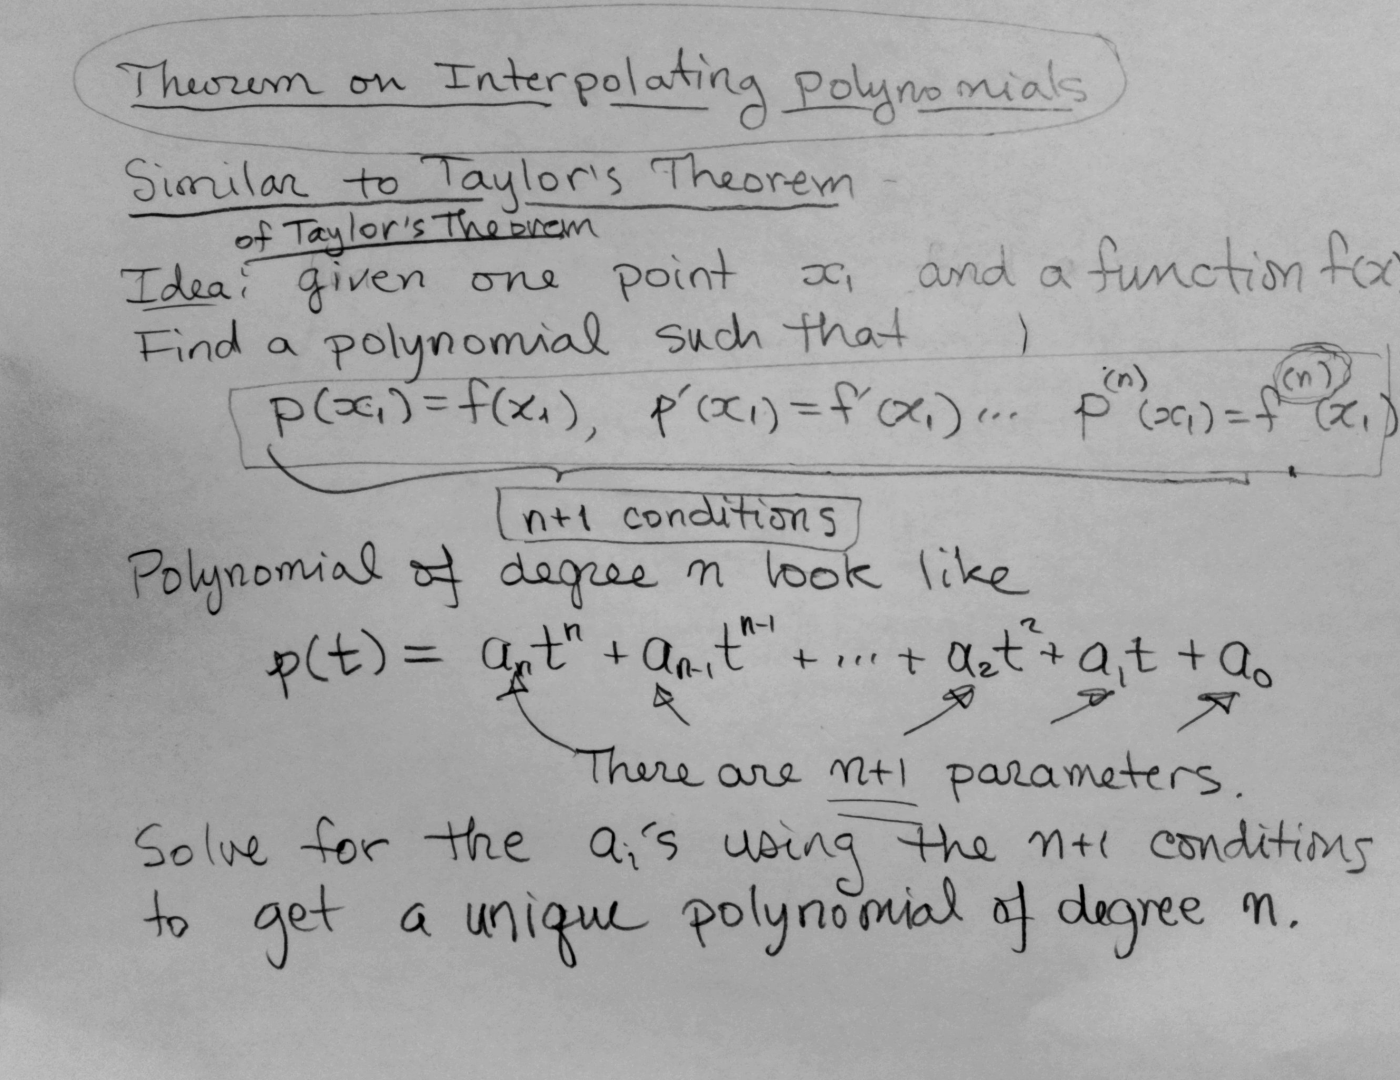 Theorem on Interpolating Polynomials
Similar to Taylor's Theorem
of Taylor's Theorem
Idea: given one point x₁ and a function f(x)
Find a polynomial such that
p(x₁) = f(x₁), p'(x₁) = f'(x₁) ... p⁽ⁿ⁾(x₁) = f⁽ⁿ⁾(x₁)
n+1 conditions
Polynomial of degree n look like
p(t) = aₙtⁿ + aₙ₋₁tⁿ⁻¹ + ... + a₂t² + a₁t + a₀
There are n+1 parameters.
Solve for the aᵢ's using the n+1 conditions
to get a unique polynomial of degree n.